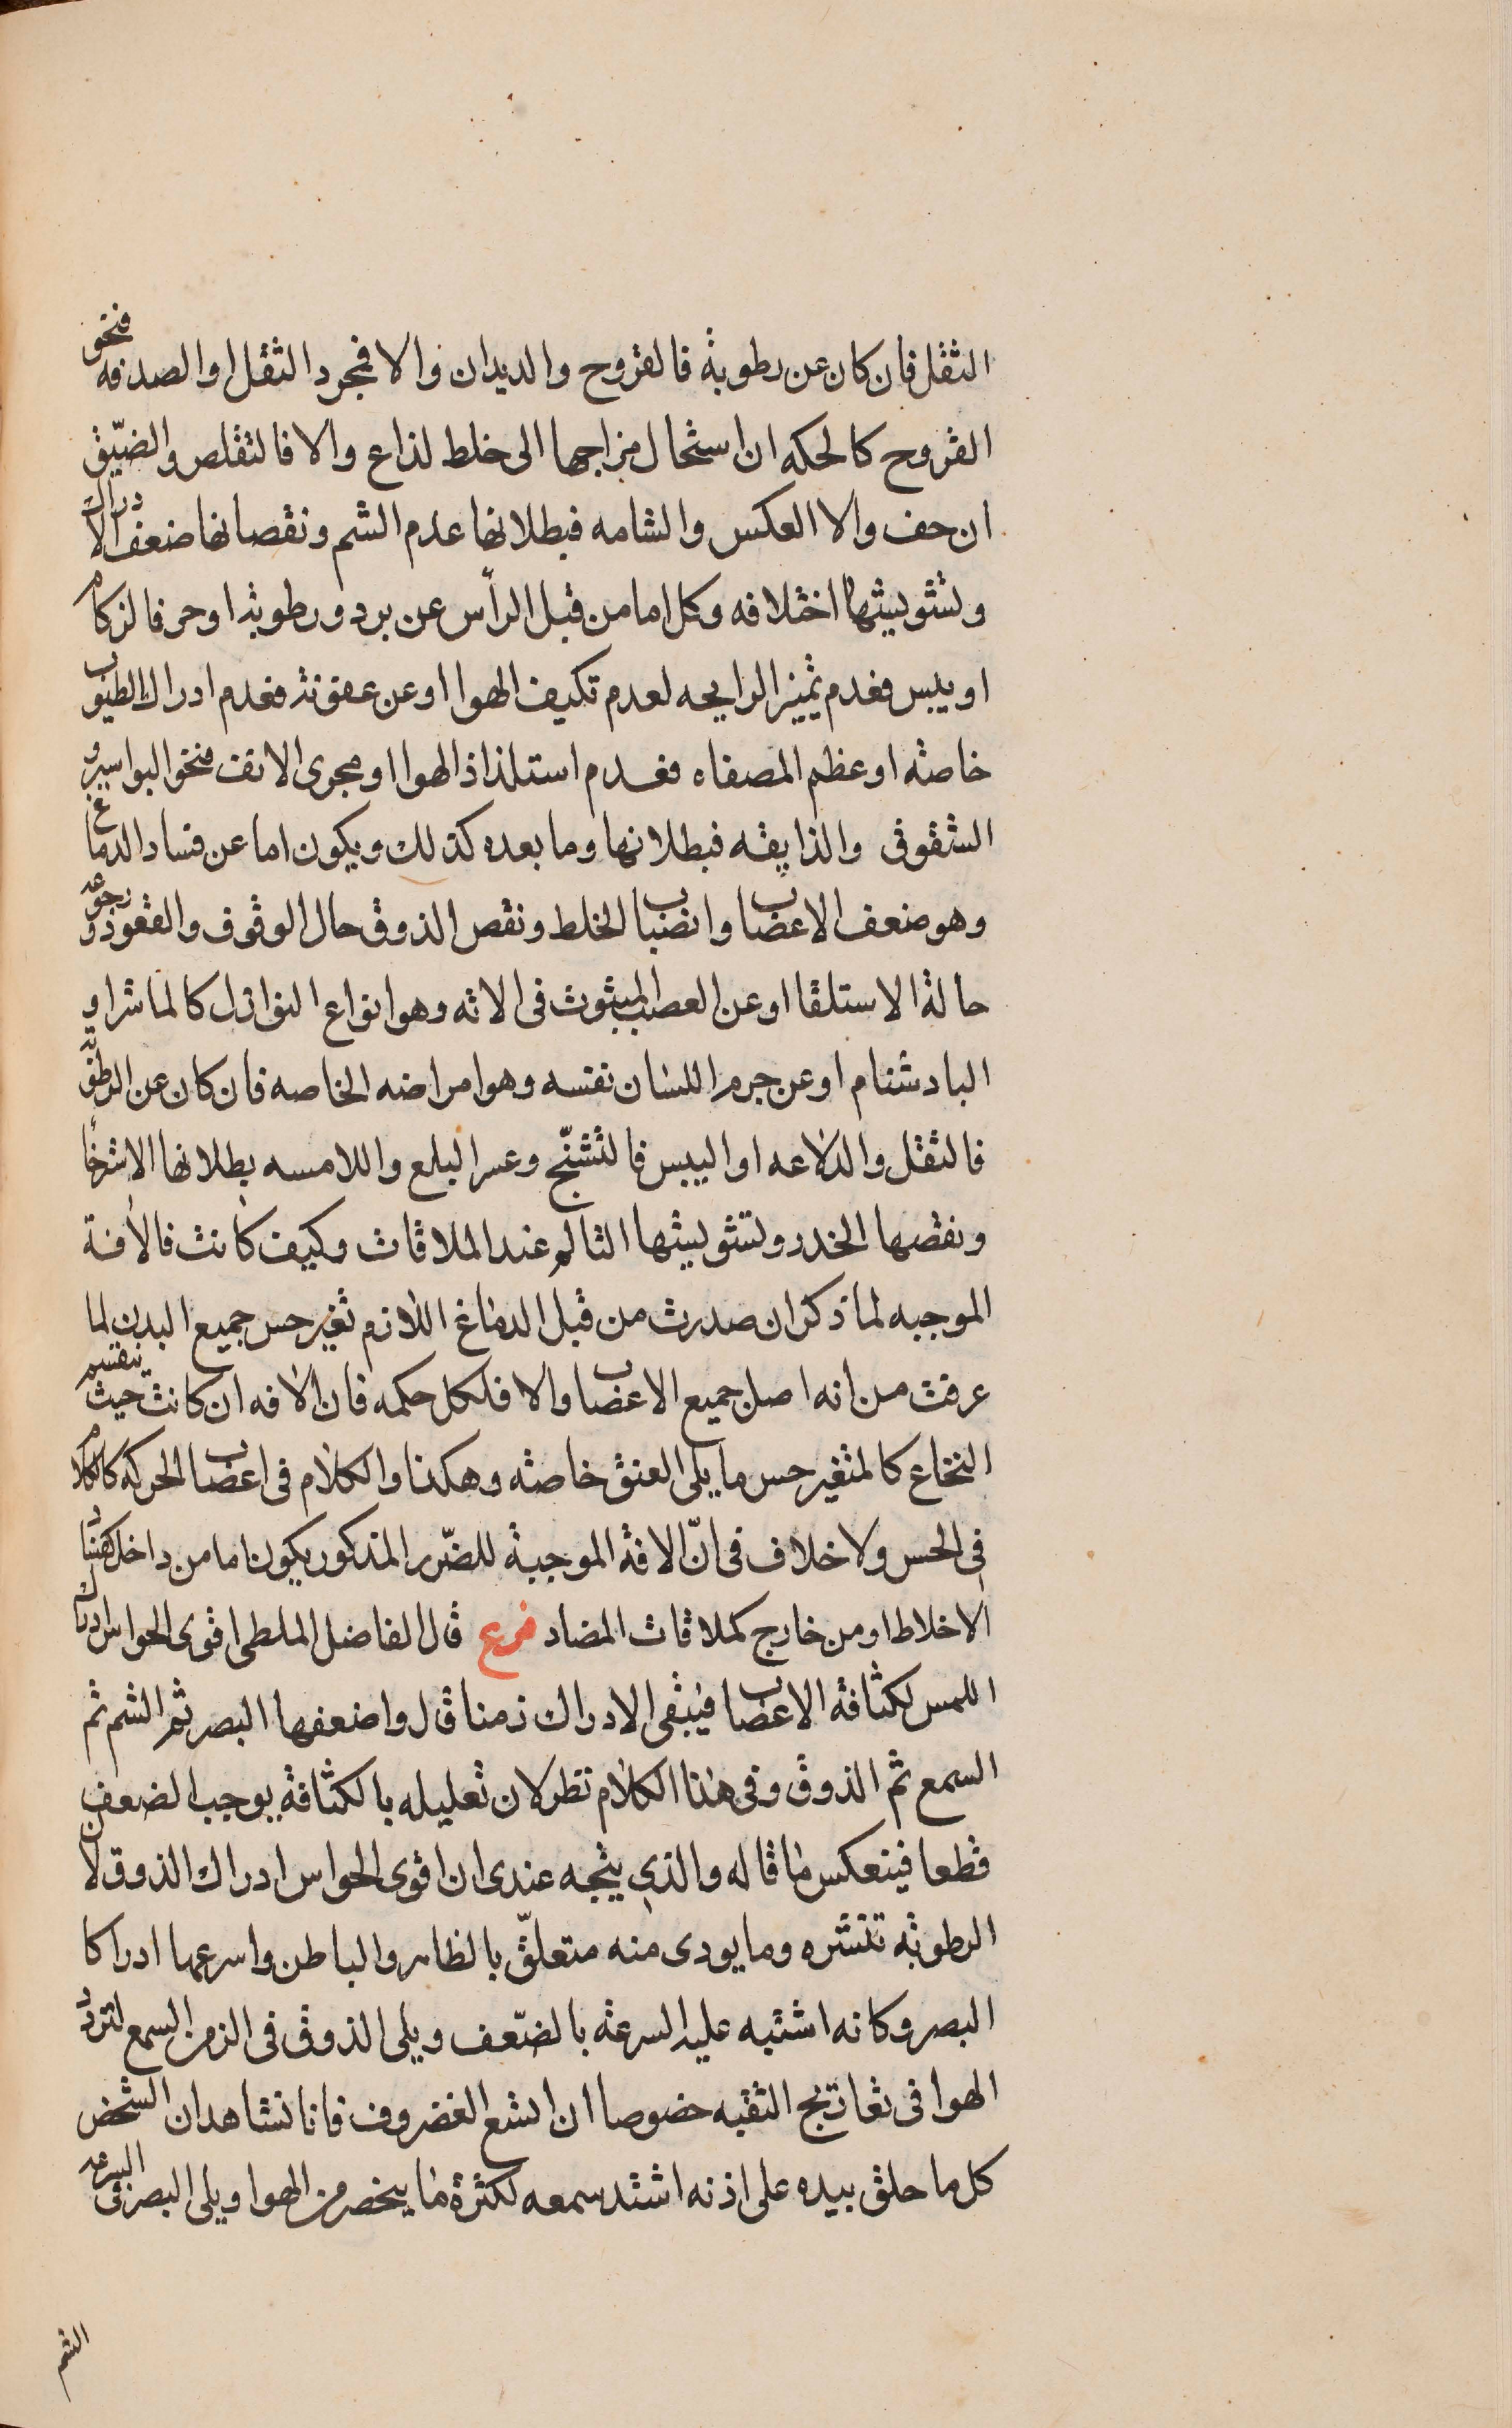 الثقل فان كان عن رطوبة فالقروح والديدان والا فمجرد الثقل او الصدفه فنحو
القروح كالحكه ان استحال مزاجها الى خلط لذاع والا فالتقلص والضيّق
ان جف والا العكس والشامه فبطلانها عدم الشم ونقصانها ضعف الادراك
وتشويشها اختلافه وكل اما من قبل الرأس عن برد ورطوبة او حر فالزكام
او يبس فعدم تميز الرايحه لعدم تكيف الهوا او عن عفونة فعدم ادراك الطيوب
خاصة او عظم المصفاه فعدم استلذاذ الهوا او مجرى الانف فنحو البواسير و
الشقوق والذايقه فبطلانها وما بعده كذلك ويكون اما عن فساد الدماغ
وهو ضعف الاعضاب وانضباب الخلط ونقص الذوق حال الوقوف والقعود ورجوعه
حالة الاستلقا او عن العصب المبثوث فى الاته وهو انواع النوازل كالماشرا و
البادشنام او عن جرم اللسان نفسه وهو امراضه الخاصه فان كان عن الرطوبة
فالثقل والدلاعه او اليبس فالتشنّج وعسر البلع واللامسه بطلانها الاسترخأ
ونقصها الخدر وتشويشها التالم عند الملاقات وكيف كانت فالأفة
الموجبه لما ذكر ان صدرت من قبل الدماغ اللازم تغير حس جميع البدن لما
عرفت من انه اصل جميع الاعضاب والا فلكل حكمه فان الافه ان كانت حيث ينقسم
النخاع كالمتغير حس ما يلى العنق خاصة وهكذا والكلام فى اعضاب الحركه كالكلام
فى الحس ولا خلاف فى انّ الافة الموجبة للضّرر المذكور يكون اما من داخل كفساد
الاخلاط او من خارج كملاقات المضاد فرع قال الفاضل الملطى اقوى الحواس ادراك
اللمس لكثافة الاعضاب فيبقى الادراك زمنا قال واضعفها البصر ثم الشم ثم
السمع ثم الذوق وفى هذا الكلام نظر لان تعليله بالكثافة يوجب الضعف
قطعا فينعكس ما قاله والذي يتجه عندى ان اقوى الحواس ادراك الذوق لان
الرطوبة تنشره وما يودى منه متعلّق بالظاهر والباطن واسرعها ادراكا
البصر وكانه اشتبه عليه السرعة بالضّعف ويلى الذوق فى الزمن السمع لتردد
الهوا فى تعاريج الثقبه خصوصا ان اتسع الغضروف فانا نشاهد ان الشخص
كل ما حلق بيده على اذنه اشتد سمعه لكثرة ما ينحصر من الهوا ويلى البصر فى السرعه
الشم